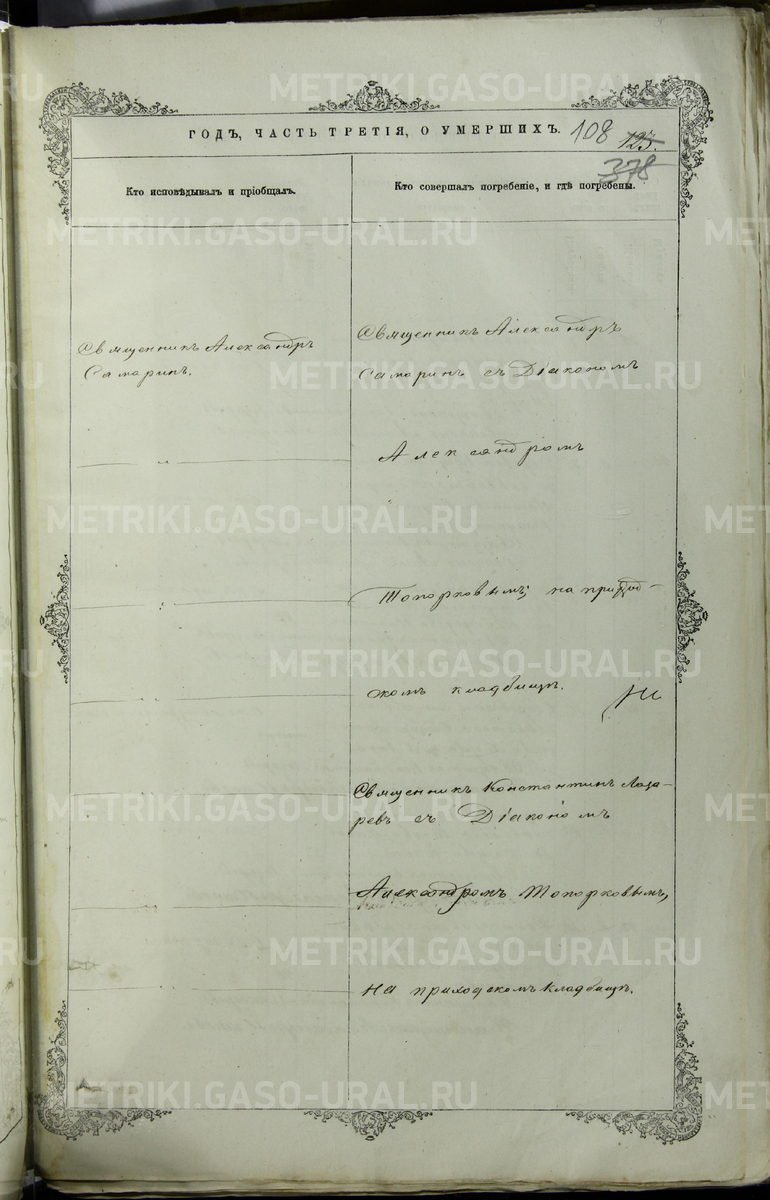 ГОДЪ, ЧАСТЬ ТРЕТІЯ, О УМЕРШИХЪ. 108 123.
378
Кто исповѣдывалъ и пріобщалъ.
Кто совершалъ погребеніе, и гдѣ погребены.
Священникъ Александръ
Самаринъ.
Священникъ Александръ
Самаринъ съ Діакономъ
Александромъ
Топорковымъ, на приход-
скомъ кладбищѣ.
Священникъ Константинъ Лаза-
ревъ съ Діакономъ
Александромъ Топорковымъ,
на приходскомъ кладбищѣ.
METRIKI.GASO-URAL.RU